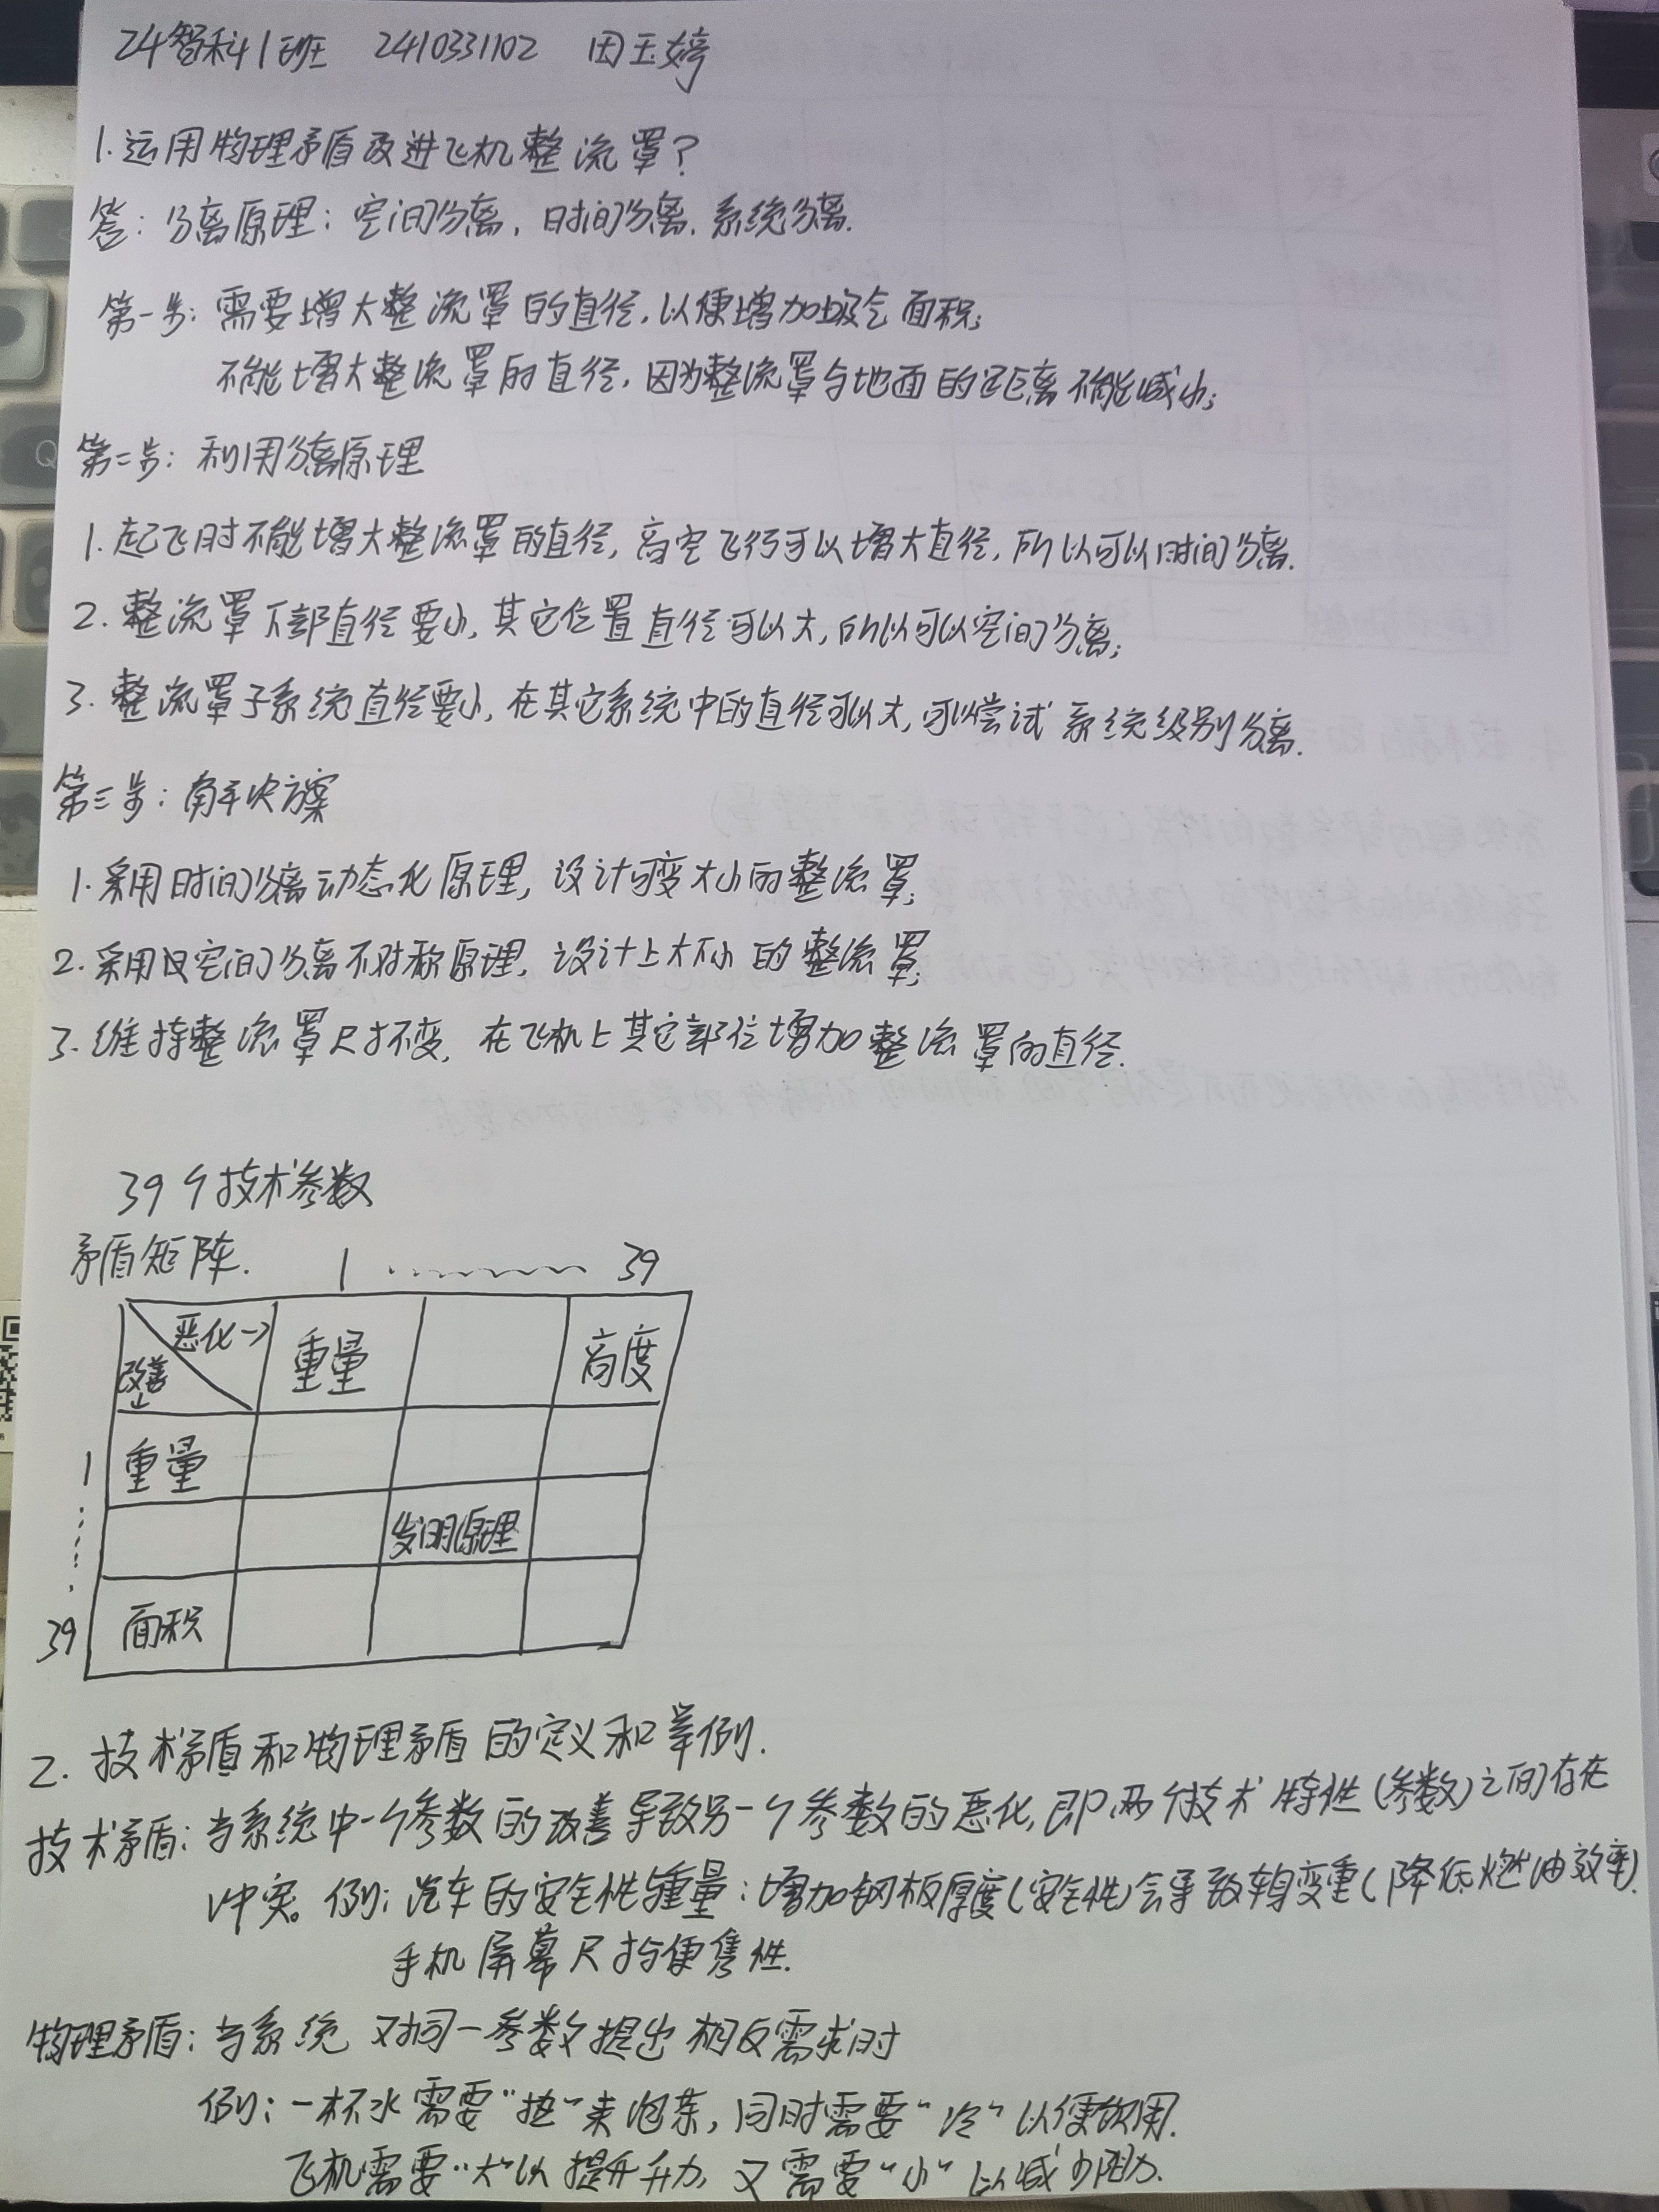 24智科1班 2410331102 田玉婷
1.运用物理矛盾改进飞机整流罩?
答:分离原理:空间分离,时间分离.系统分离.
第一步:需要增大整流罩的直径,以便增加吸气面积;
不能增大整流罩的直径,因为整流罩与地面的距离不能减小;
第二步:利用分离原理
1.起飞时不能增大整流罩的直径,高空飞行可以增大直径,所以可以时间分离.
2.整流罩下部直径要小,其它位置直径可以大,所以可以空间分离;
3.整流罩子系统直径要小,在其它系统中的直径可以大,可以尝试系统级别分离.
第三步:解决方案
1.采用时间分离动态化原理,设计可变大小的整流罩;
2.采用空间分离不对称原理,设计上大下小的整流罩;
3.维持整流罩尺寸不变,在飞机上其它部位增加整流罩的直径.
39个技术参数
矛盾矩阵. 1 ········ 39
恶化→ 重量 高度
改善↓
1 重量
发明原理
39 面积
2.技术矛盾和物理矛盾的定义和举例.
技术矛盾:当系统中一个参数的改善导致另一个参数的恶化,即两个技术特性(参数)之间存在
冲突。例:汽车的安全性与重量:增加钢板厚度(安全性)会导致车身变重(降低燃油效率).
手机屏幕尺寸与便隽性.
物理矛盾:当系统对同一参数提出相反需求时
例:一杯水需要"热"来泡茶,同时需要"冷"以便饮用.
飞机需要"大"以提升升力,又需要"小"以减少阻力.